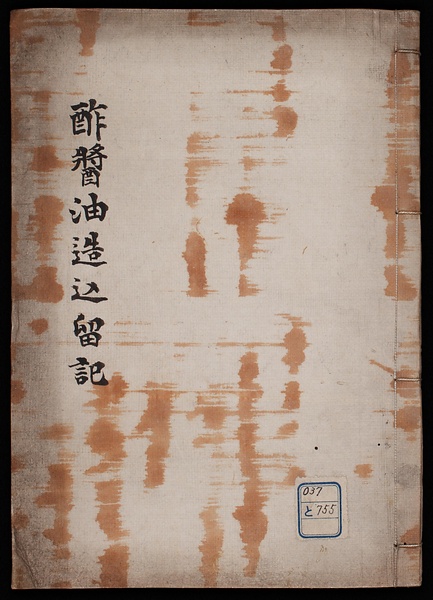 酢醤油造込留記
037
と755